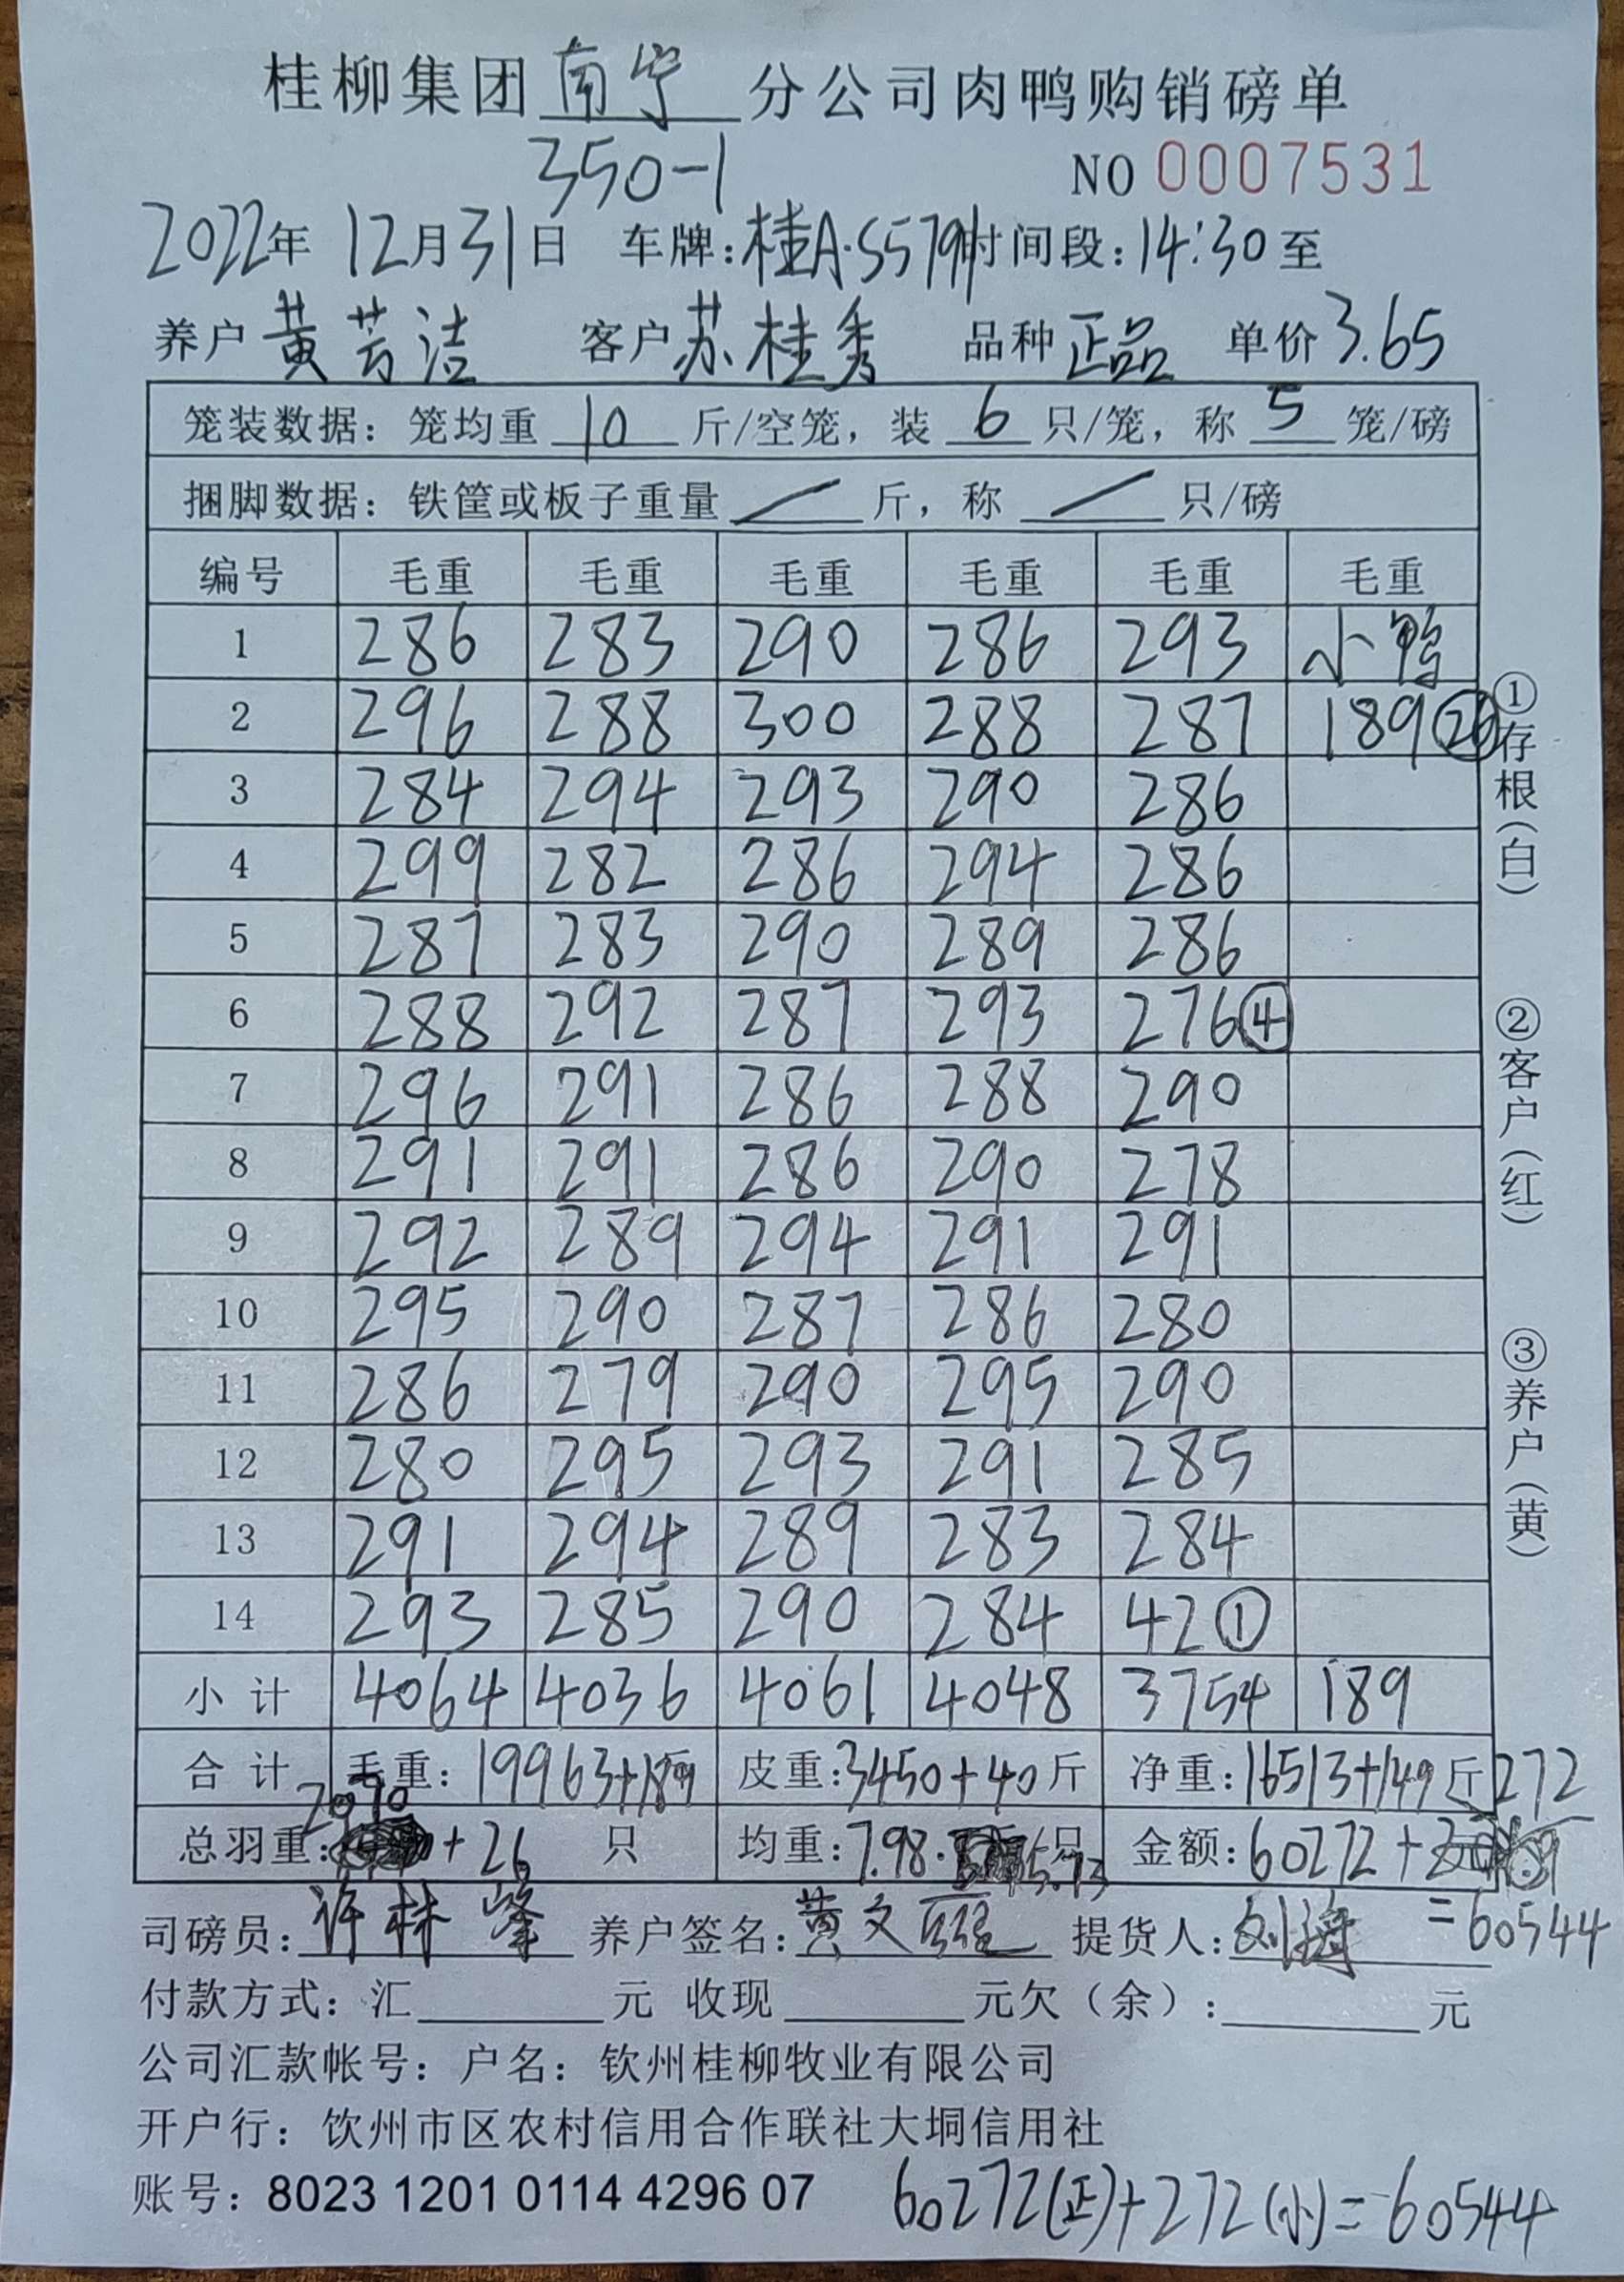 桂柳集团南宁分公司肉鸭购销磅单
350-1 NO 0007531
2022年 12月31日 车牌:桂A·S5791 时间段:14:30至
养户 黄芳洁 客户 苏桂秀 品种 正品 单价 3.65
笼装数据: 笼均重 10 斤/空笼, 装 6 只/笼, 称 5 笼/磅
捆脚数据: 铁筐或板子重量 / 斤, 称 / 只/磅
编号 毛重 毛重 毛重 毛重 毛重 毛重
1 286 283 290 286 293 小鸭
2 296 288 300 288 287 189 ㉖
3 284 294 293 290 286
4 299 282 286 294 286
5 287 283 290 289 286
6 288 292 287 293 276 ④
7 296 291 286 288 290
8 291 291 286 290 278
9 292 289 294 291 291
10 295 290 287 286 280
11 286 279 290 295 290
12 280 295 293 291 285
13 291 294 289 283 284
14 293 285 290 284 42 ①
小计 4064 4036 4061 4048 3754 189
合计 毛重: 19963+189斤 皮重:3450+40斤 净重:16513+149斤 272
总羽重: 2070+26 只 均重:7.98· 5.73 /只 金额:60272+
=60544
司磅员: 许林峰 养户签名: 黄文 提货人: 刘海
付款方式: 汇 元 收现 元欠(余): 元
公司汇款帐号: 户名: 钦州桂柳牧业有限公司
开户行: 饮州市区农村信用合作联社大垌信用社
账号: 8023 1201 0114 4296 07
60272(正)+272(小)=60544
①存根(白)
②客户(红)
③养户(黄)